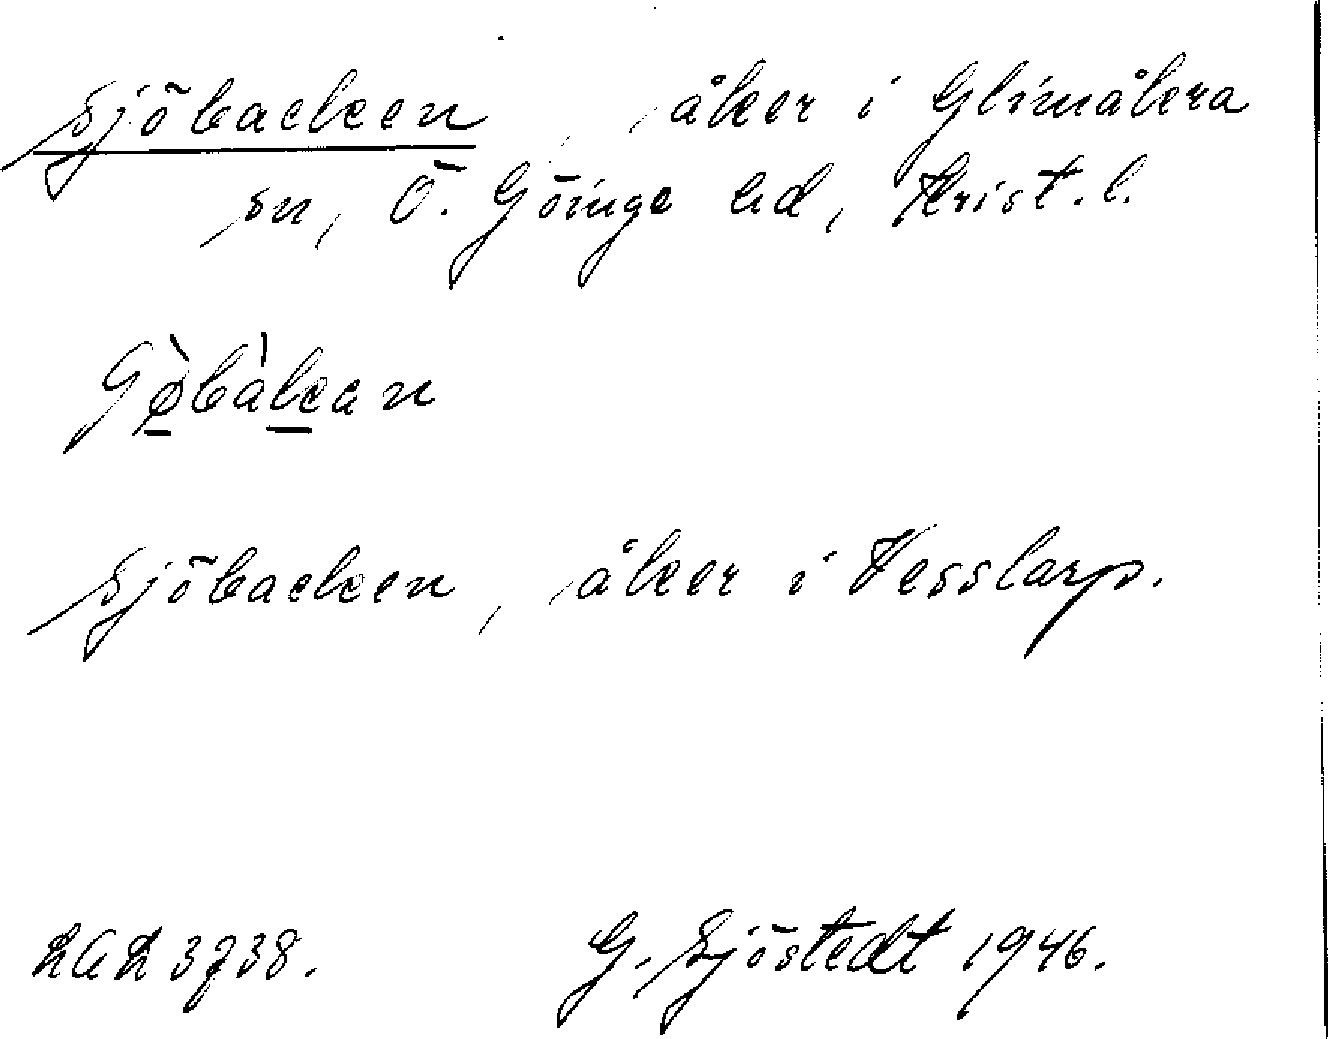 Sjöbacken, åker i Glimåkra
sn, Ö. Göinge hd, Krist. l.
Sjöbacken, åker i Vesslarp.
LAL 3738. G. Sjöstedt 1946.